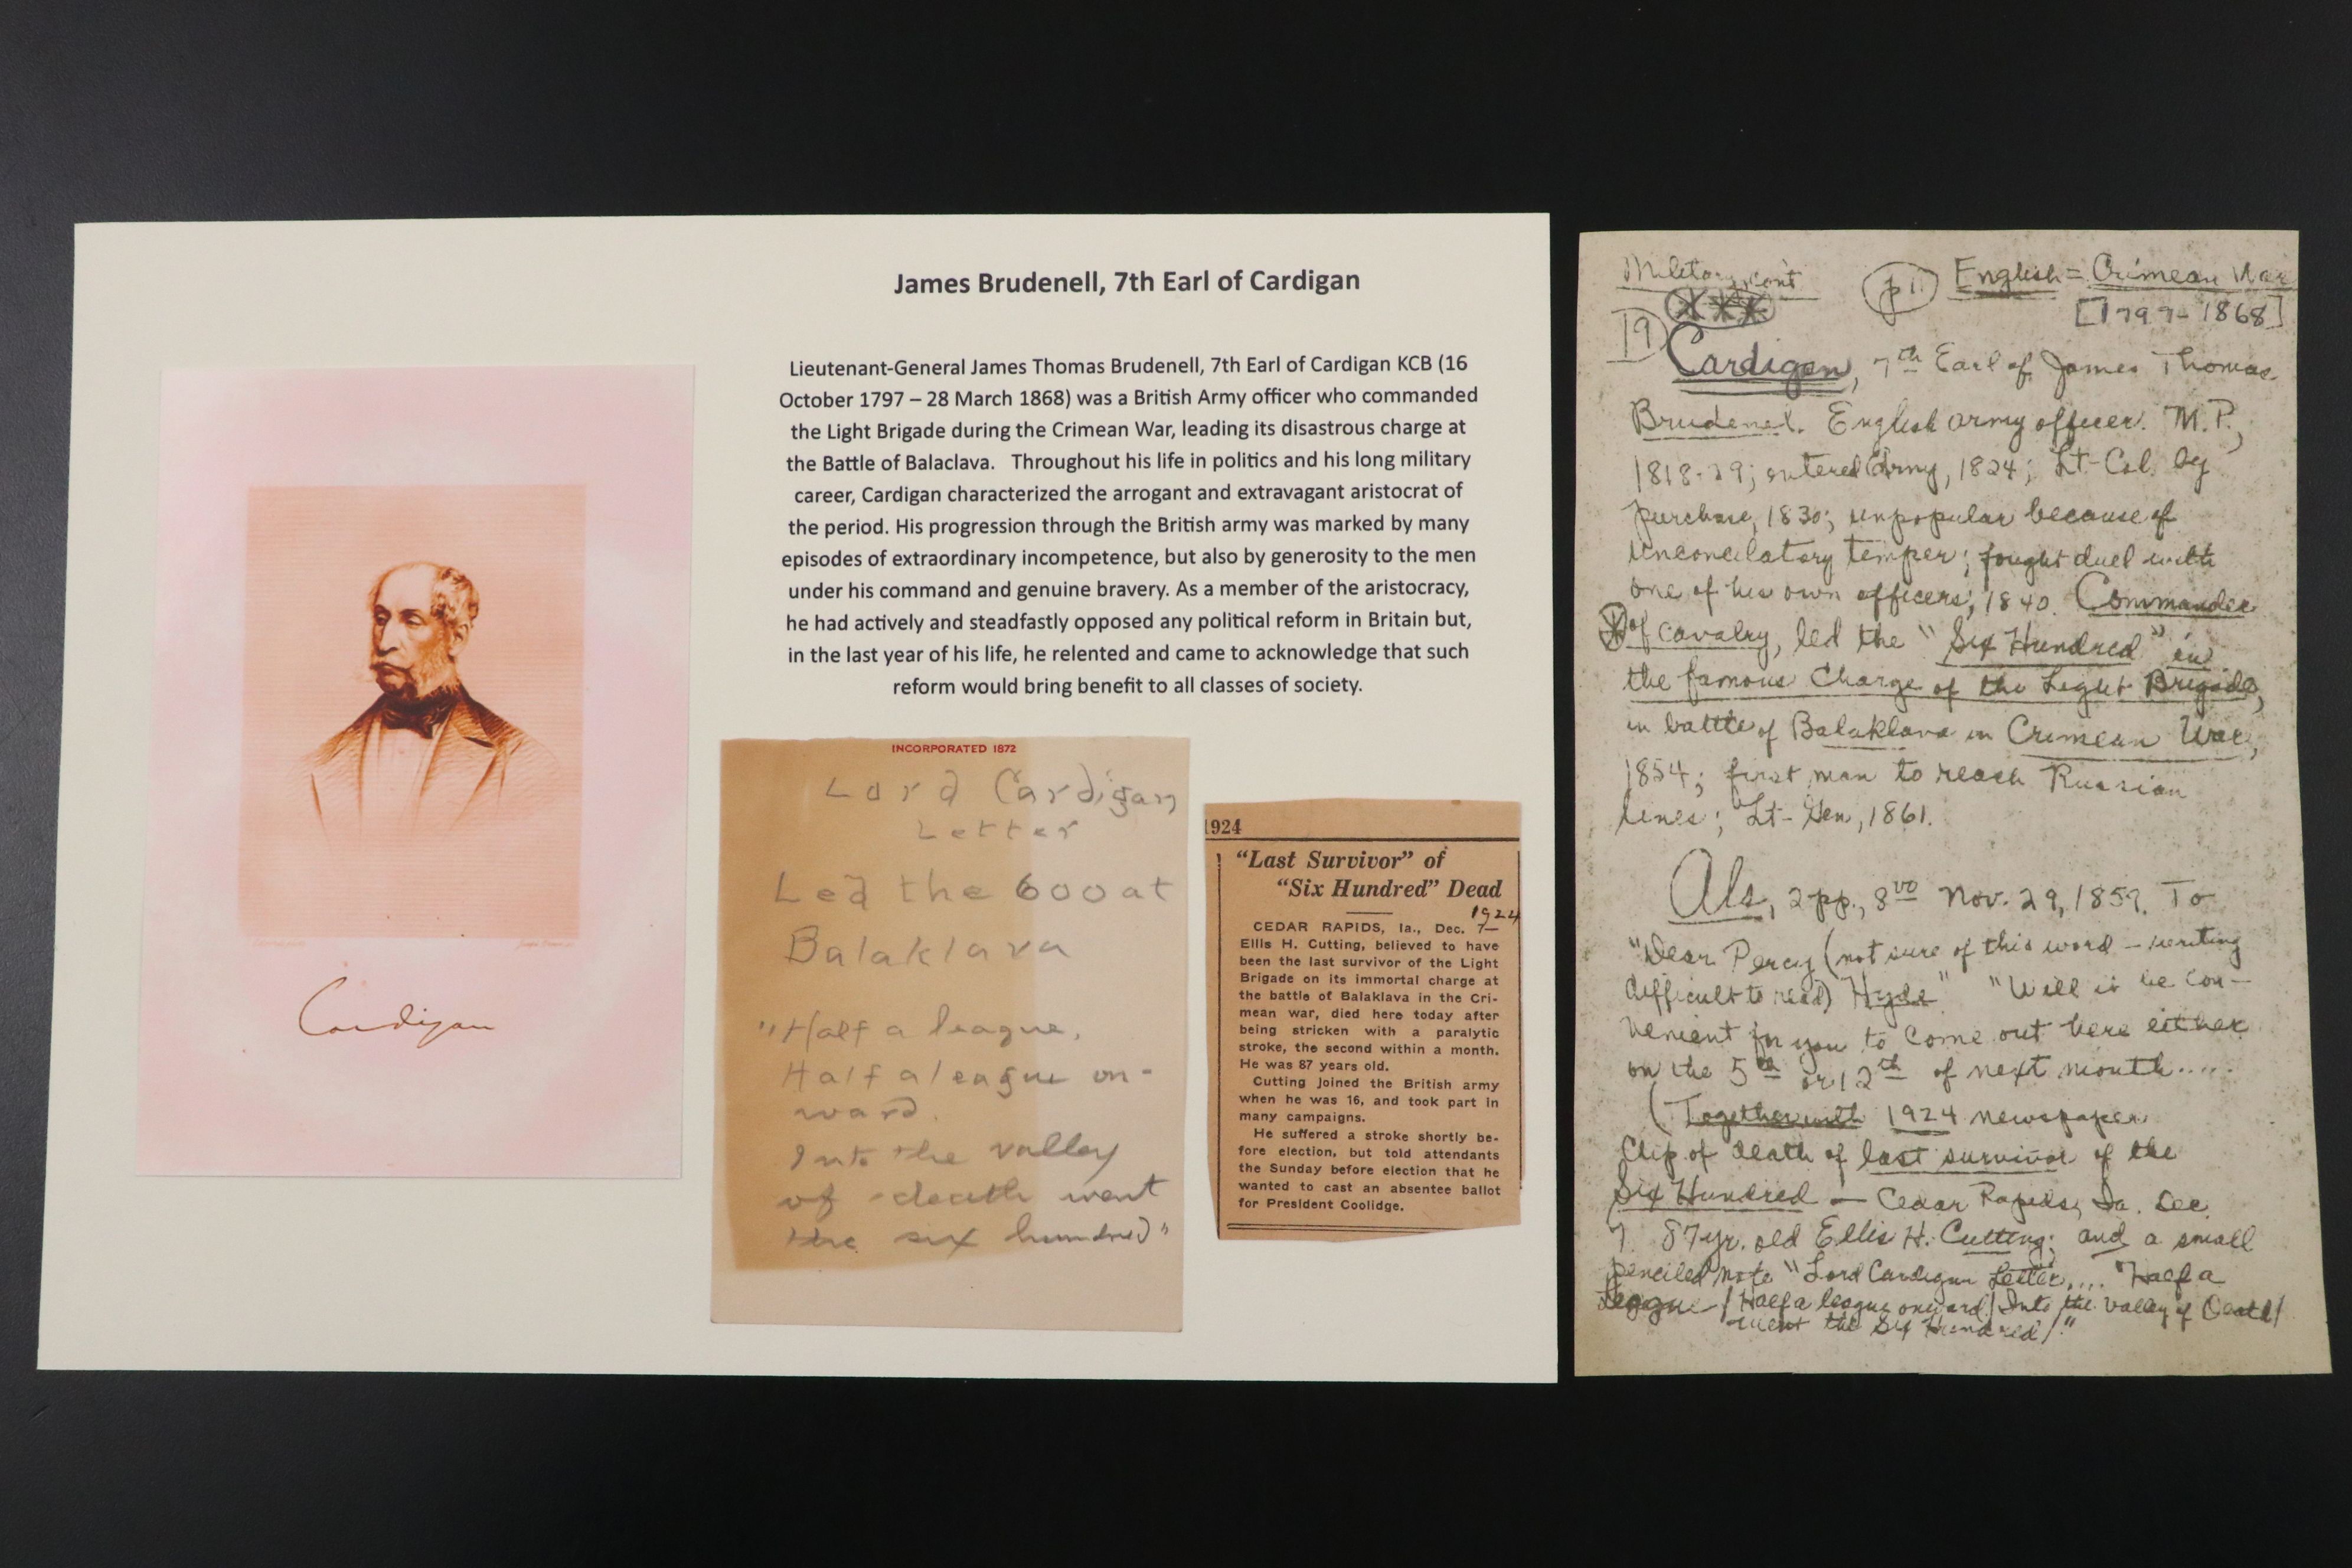 James Brudenell, 7th Earl of Cardigan
Lieutenant-General James Thomas Brudenell, 7th Earl of Cardigan KCB (16
October 1797 – 28 March 1868) was a British Army officer who commanded
the Light Brigade during the Crimean War, leading its disastrous charge at
the Battle of Balaclava.   Throughout his life in politics and his long military
career, Cardigan characterized the arrogant and extravagant aristocrat of
the period. His progression through the British army was marked by many
episodes of extraordinary incompetence, but also by generosity to the men
under his command and genuine bravery. As a member of the aristocracy,
he had actively and steadfastly opposed any political reform in Britain but,
in the last year of his life, he relented and came to acknowledge that such
reform would bring benefit to all classes of society.
Cardigan
INCORPORATED 1872
Lord Cardigan
Letter
Led the 600 at
Balaklava
"Half a league,
Half a league on-
ward.
Into the valley
of death went
the six hundred"
1924
"Last Survivor" of
"Six Hundred" Dead
1924
CEDAR RAPIDS, Ia., Dec. 7—
Ellis H. Cutting, believed to have
been the last survivor of the Light
Brigade on its immortal charge at
the battle of Balaklava in the Cri-
mean war, died here today after
being stricken with a paralytic
stroke, the second within a month.
He was 87 years old.
Cutting joined the British army
when he was 16, and took part in
many campaigns.
He suffered a stroke shortly be-
fore election, but told attendants
the Sunday before election that he
wanted to cast an absentee ballot
for President Coolidge.
Military cont
p 11
English = Crimean War
[1797-1868]
19
Cardigan, 7th Earl of James Thomas
Brudenel. English army officer. M.P.,
1818-29; entered Army, 1824; Lt-Col. by
purchase, 1830; unpopular because of
unconcilatory temper; fought duel with
one of his own officers, 1840. Commander
of cavalry, led the "Six Hundred" in
the famous Charge of the Light Brigade,
in battle of Balaklava in Crimean War,
1854; first man to reach Russian
lines; Lt-Gen, 1861.
Als, 2pp., 8vo Nov. 29, 1859. To
"Dear Percy (not sure of this word - writing
difficult to read) Hyde" "Will it be con-
venient for you to come out here either
on the 5th or 12th of next month.....
(Together with 1924 newspaper
Clip. of death of last survivor of the
Six Hundred — Cedar Rapids, Ia. Dec.
7. 87 yr. old Ellis H. Cutting; and a small
penciled note "Lord Cardigan Letter.... "Half a
league / Half a league onward / Into the valley of Death /
went the Six Hundred /."